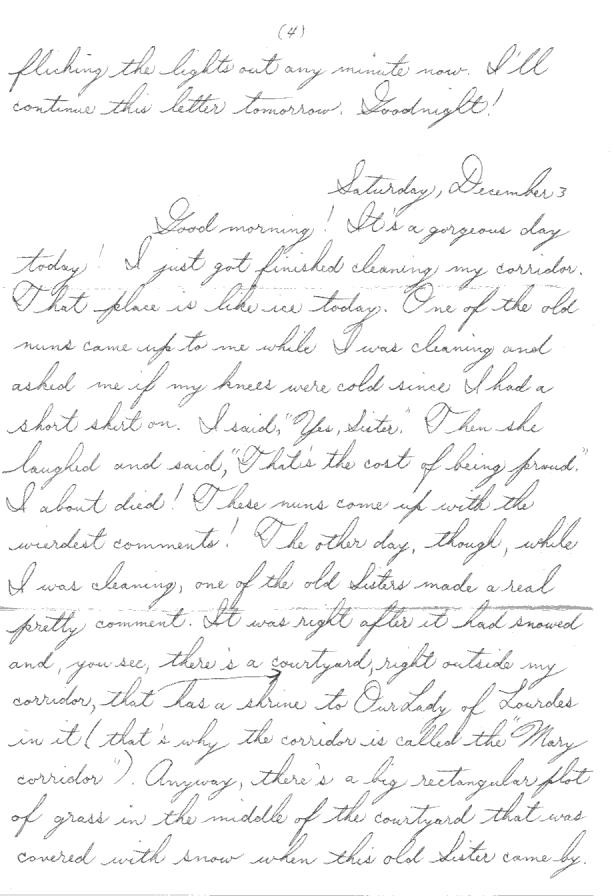 (4)
flicking the lights out any minute now. I'll
continue this letter tomorrow. Goodnight!
Saturday, December 3
Good morning! It's a gorgeous day
today! I just got finished cleaning my corridor.
That place is like ice today. One of the old
nuns came up to me while I was cleaning and
asked me if my knees were cold since I had a
short skirt on. I said, "Yes, Sister." Then she
laughed and said, "That's the cost of being proud."
I about died! These nuns come up with the
wierdest comments! The other day, though, while
I was cleaning, one of the old Sisters made a real
pretty comment. It was right after it had snowed
and, you see, there's a courtyard, right outside my
corridor, that has a shrine to Our Lady of Lourdes
in it (that's why the corridor is called the "Mary
corridor"). Anyway, there's a big rectangular plot
of grass in the middle of the courtyard that was
covered with snow when this old Sister came by.